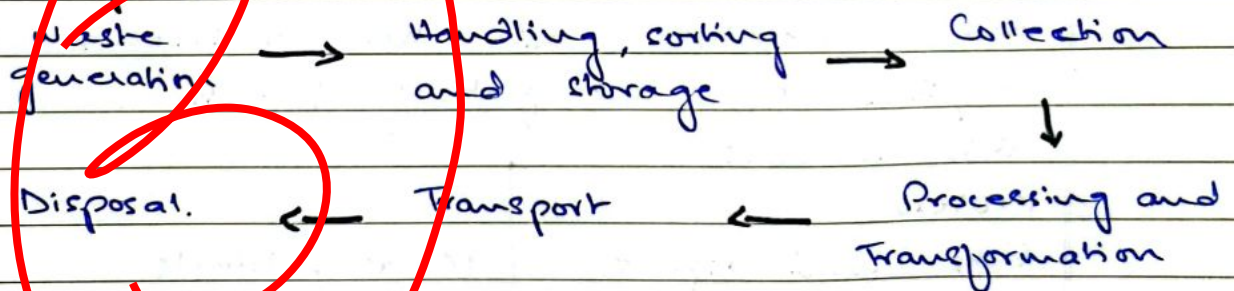 Waste generation → Handling, sorting and storage → Collection
↓
Processing and Transformation → Transport → Disposal.